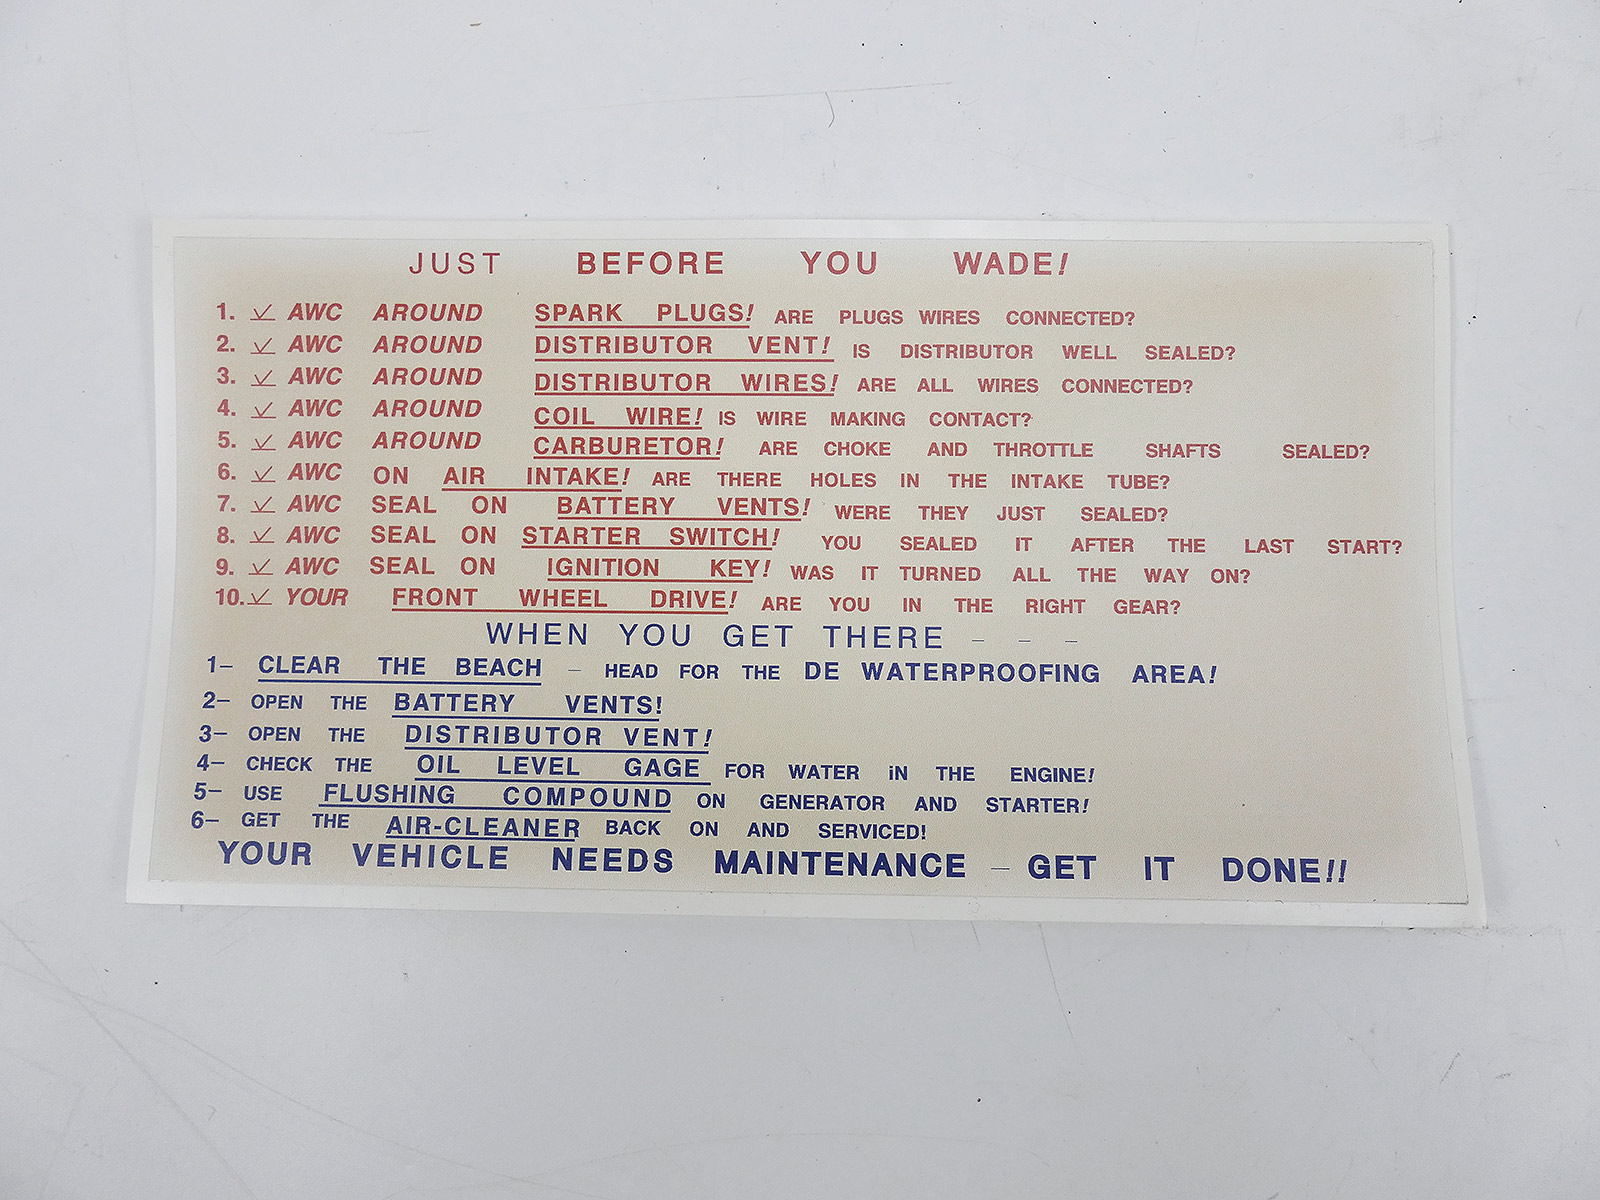 JUST BEFORE YOU WADE!
1. ✓ AWC AROUND SPARK PLUGS! ARE PLUGS WIRES CONNECTED?
2. ✓ AWC AROUND DISTRIBUTOR VENT! IS DISTRIBUTOR WELL SEALED?
3. ✓ AWC AROUND DISTRIBUTOR WIRES! ARE ALL WIRES CONNECTED?
4. ✓ AWC AROUND COIL WIRE! IS WIRE MAKING CONTACT?
5. ✓ AWC AROUND CARBURETOR! ARE CHOKE AND THROTTLE SHAFTS SEALED?
6. ✓ AWC ON AIR INTAKE! ARE THERE HOLES IN THE INTAKE TUBE?
7. ✓ AWC SEAL ON BATTERY VENTS! WERE THEY JUST SEALED?
8. ✓ AWC SEAL ON STARTER SWITCH! YOU SEALED IT AFTER THE LAST START?
9. ✓ AWC SEAL ON IGNITION KEY! WAS IT TURNED ALL THE WAY ON?
10. ✓ YOUR FRONT WHEEL DRIVE! ARE YOU IN THE RIGHT GEAR?
WHEN YOU GET THERE - - -
1- CLEAR THE BEACH - HEAD FOR THE DE WATERPROOFING AREA!
2- OPEN THE BATTERY VENTS!
3- OPEN THE DISTRIBUTOR VENT!
4- CHECK THE OIL LEVEL GAGE FOR WATER iN THE ENGINE!
5- USE FLUSHING COMPOUND ON GENERATOR AND STARTER!
6- GET THE AIR-CLEANER BACK ON AND SERVICED!
YOUR VEHICLE NEEDS MAINTENANCE - GET IT DONE!!